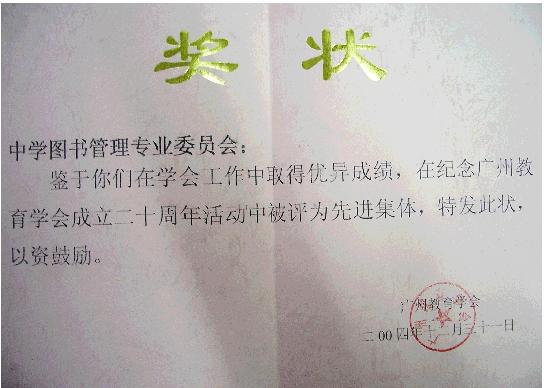 奖状
中学图书管理专业委员会：
鉴于你们在学会工作中取得优异成绩，在纪念广州教
育学会成立二十周年活动中被评为先进集体，特发此状，
以资鼓励。
广州教育学会
二00四年十二月三十一日